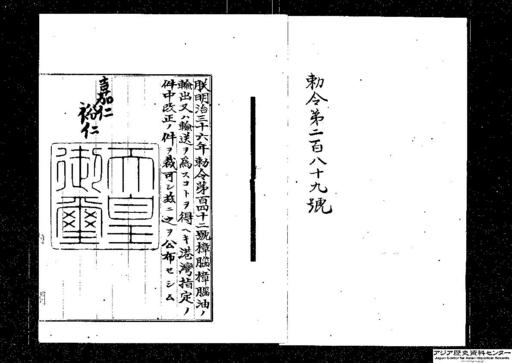 勅令第二百八十九號
朕明治三十六年勅令第百四十二號樟腦樟腦油ノ
輸出又ハ輸送ヲ為スコトヲ得ヘキ港灣指定ノ
件中改正ノ件ヲ裁可シ茲ニ之ヲ公布セシム
嘉仁
裕仁
天皇
御璽
アジア歴史資料センター
Japan Center for Asian Historical Records